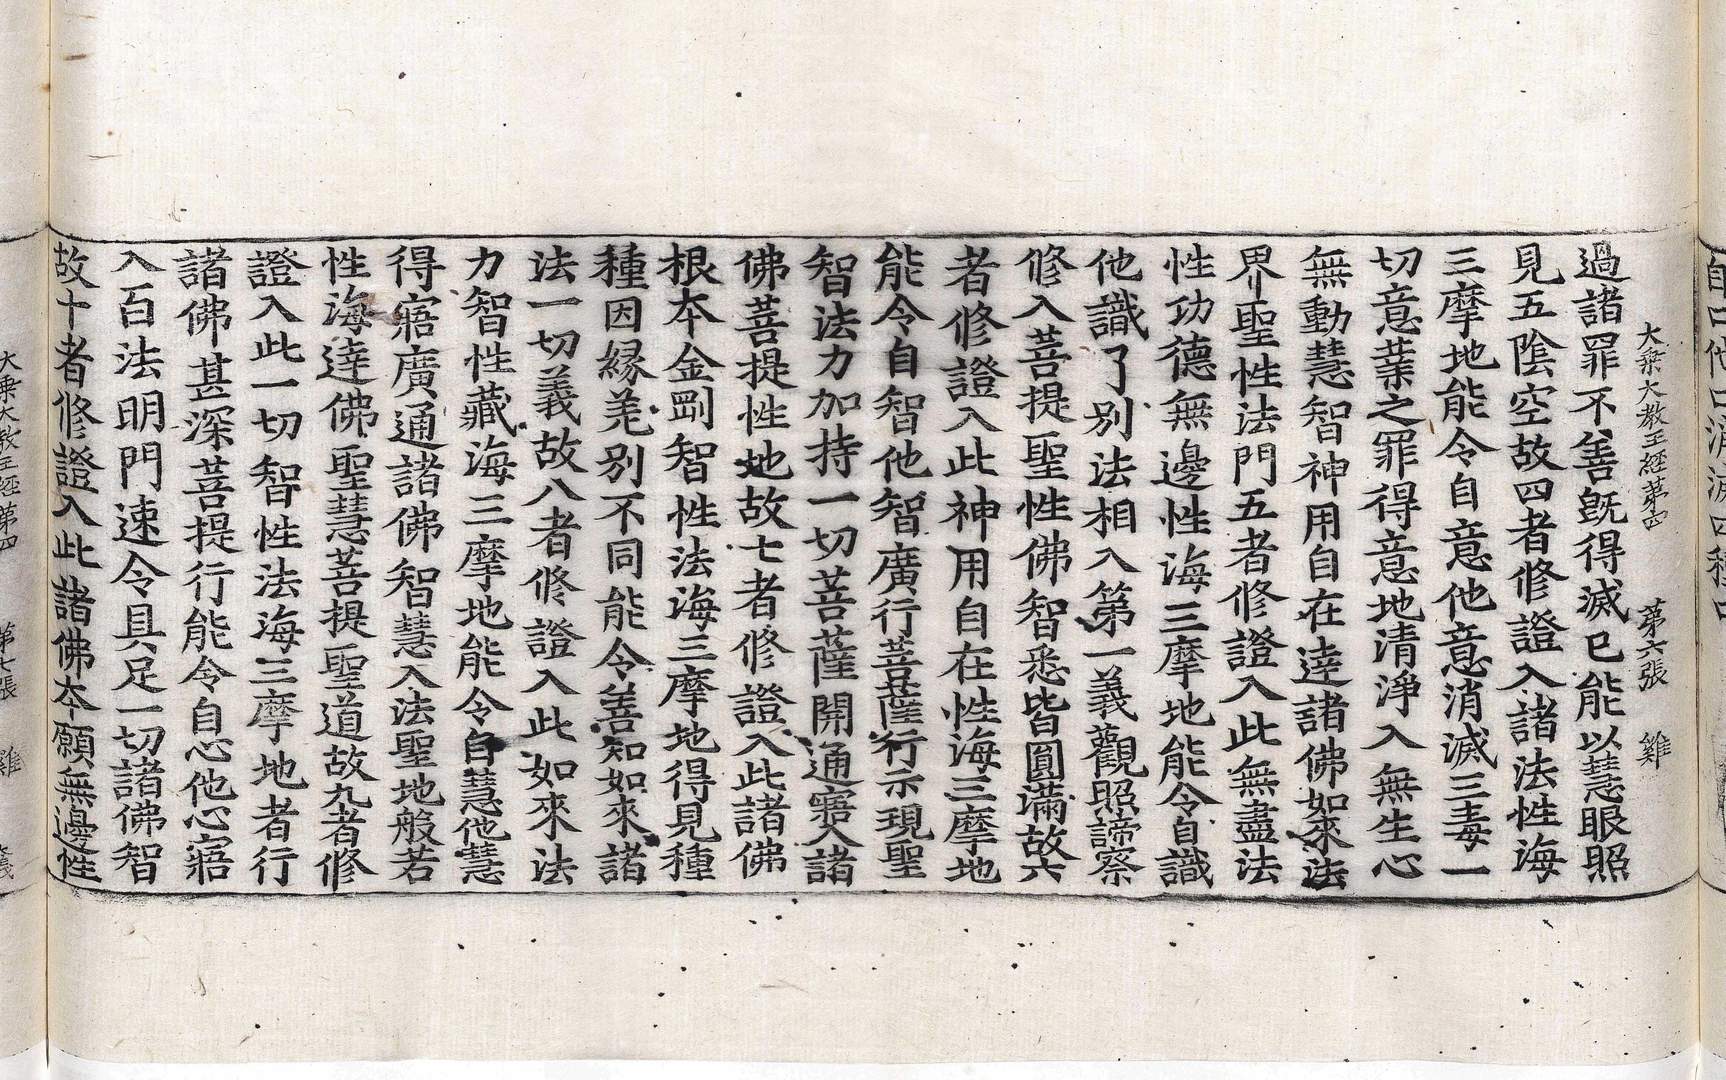 大乘大教王經第四　第六張　雞
過諸罪不善旣得滅已能以慧眼照
見五陰空故四者修證入諸法性海
三摩地能令自意他意消滅三毒一
切意業之罪得意地清淨入無生心
無動慧智神用自在達諸佛如來法
界聖性法門五者修證入此無盡法
性功德無邊性海三摩地能令自識
他識了別法相入第一義觀照諦察
修入菩提聖性佛智悉皆圓滿故六
者修證入此神用自在性海三摩地
能令自智他智廣行菩薩行示現聖
智法力加持一切菩薩開通寤入諸
佛菩提性地故七者修證入此諸佛
根本金剛智性法海三摩地得見種
種因緣羌別不同能令善知如來諸
法一切義故八者修證入此如來法
力智性藏海三摩地能令自慧他慧
得寤廣通諸佛智慧入法聖地般若
性海達佛聖慧菩提聖道故九者修
證入此一切智性法海三摩地者行
諸佛甚深菩提行能令自心他心寤
入百法明門速令具足一切諸佛智
故十者修證入此諸佛本願無邊性
大乘大教王經第四　第七張　雞